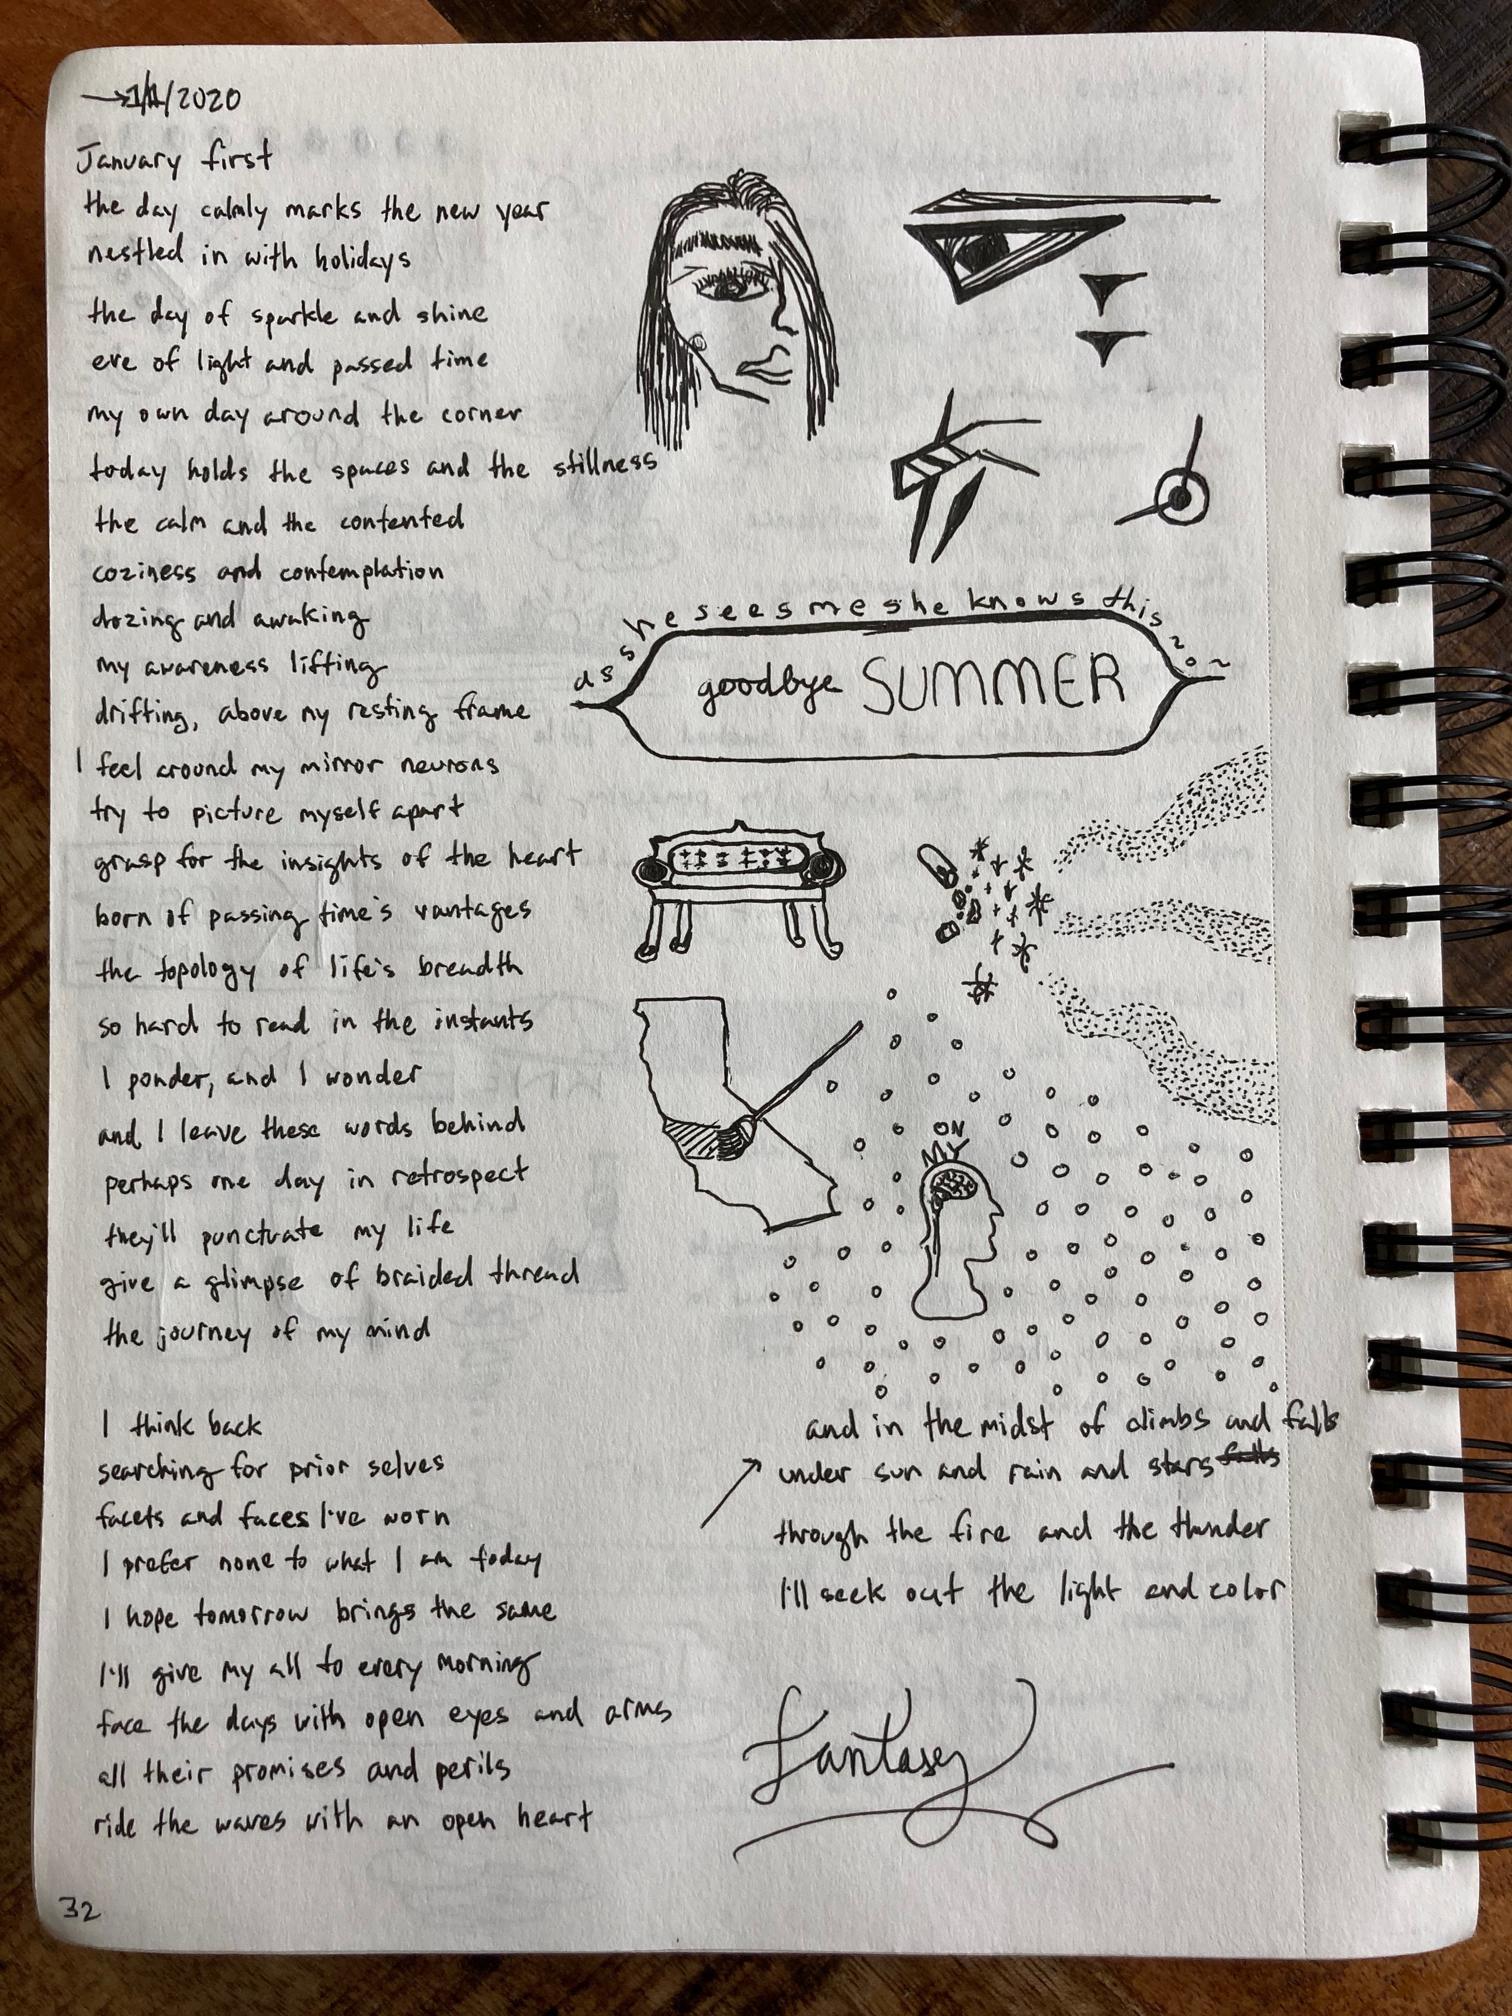 →1/1/2020
January first
the day calmly marks the new year
nestled in with holidays
the day of sparkle and shine
eve of light and passed time
my own day around the corner
today holds the spaces and the stillness
the calm and the contented
coziness and contemplation
dozing and awaking
my awareness lifting
drifting, above my resting frame
I feel around my mirror neurons
try to picture myself apart
grasp for the insights of the heart
born of passing time's vantages
the topology of life's breadth
so hard to read in the instants
I ponder, and I wonder
and I leave these words behind
perhaps one day in retrospect
they'll punctuate my life
give a glimpse of braided thread
the journey of my mind
I think back
searching for prior selves
facets and faces I've worn
I prefer none to what I am today
I hope tomorrow brings the same
I'll give my all to every morning
face the days with open eyes and arms
all their promises and perils
ride the waves with an open heart
32
as she sees me she knows this
goodbye SUMMER
ON
MY
and in the midst of climbs and falls
under sun and rain and stars falls
through the fire and the thunder
I'll seek out the light and color
fantasy